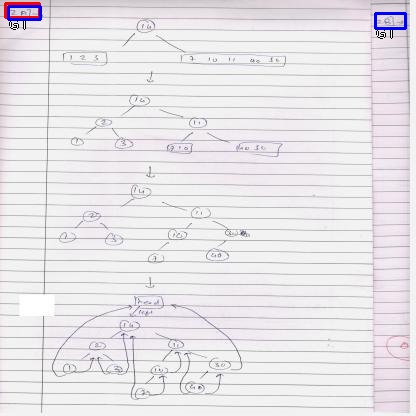 14
1 2 3
7 10 11 40 30
14
2 11
1 3 7 10 40 30
14
2 11
1 3 10
7 40
head
left
14
2 11
1 3 10 30
7 40